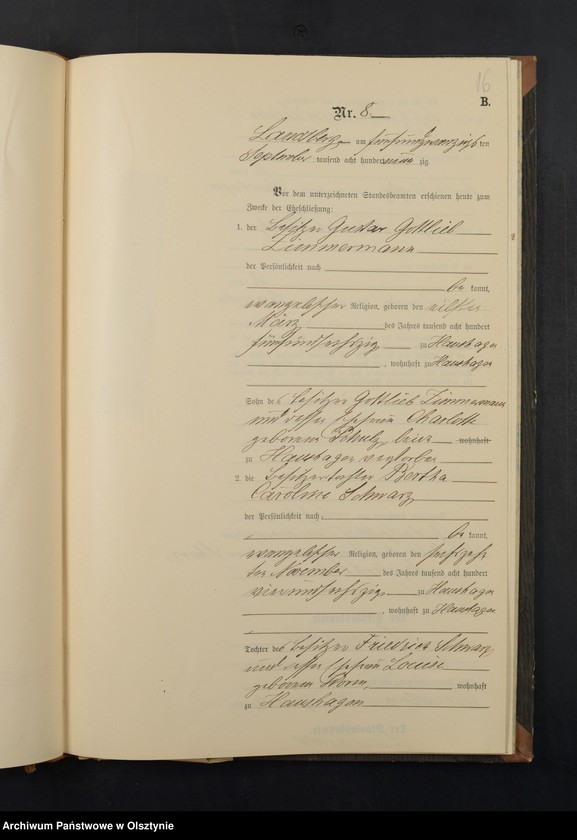 16
B.
Nr. 8
Landsberg am fünfundzwanzigsten
September tausend acht hundert neun zig.
Vor dem unterzeichneten Standesbeamten erschienen heute zum
Zwecke der Eheschließung:
1. der Besitzer Gustav Gottlieb
Zimmermann
der Persönlichkeit nach
be kannt,
evangelischer Religion, geboren den elften
März des Jahres tausend acht hundert
fünfundsechszig zu Hanshagen
, wohnhaft zu Hanshagen
Sohn des Besitzer Gottlieb Zimmermann
und dessen Ehefrau Charlotte
geborenen Schulz, beide wohnhaft
zu Hanshagen verstorben
2. die Besitzertochter Bertha
Caroline Schwarz
der Persönlichkeit nach
be kannt,
evangelischer Religion, geboren den sechszehn
ten November des Jahres tausend acht hundert
vierundsechszig zu Hanshagen
, wohnhaft zu Hanshagen
Tochter des Besitzer Friedrich Schwarz
und dessen Ehefrau Louise
geborenen wohnhaft
zu Hanshagen
Archiwum Państwowe w Olsztynie